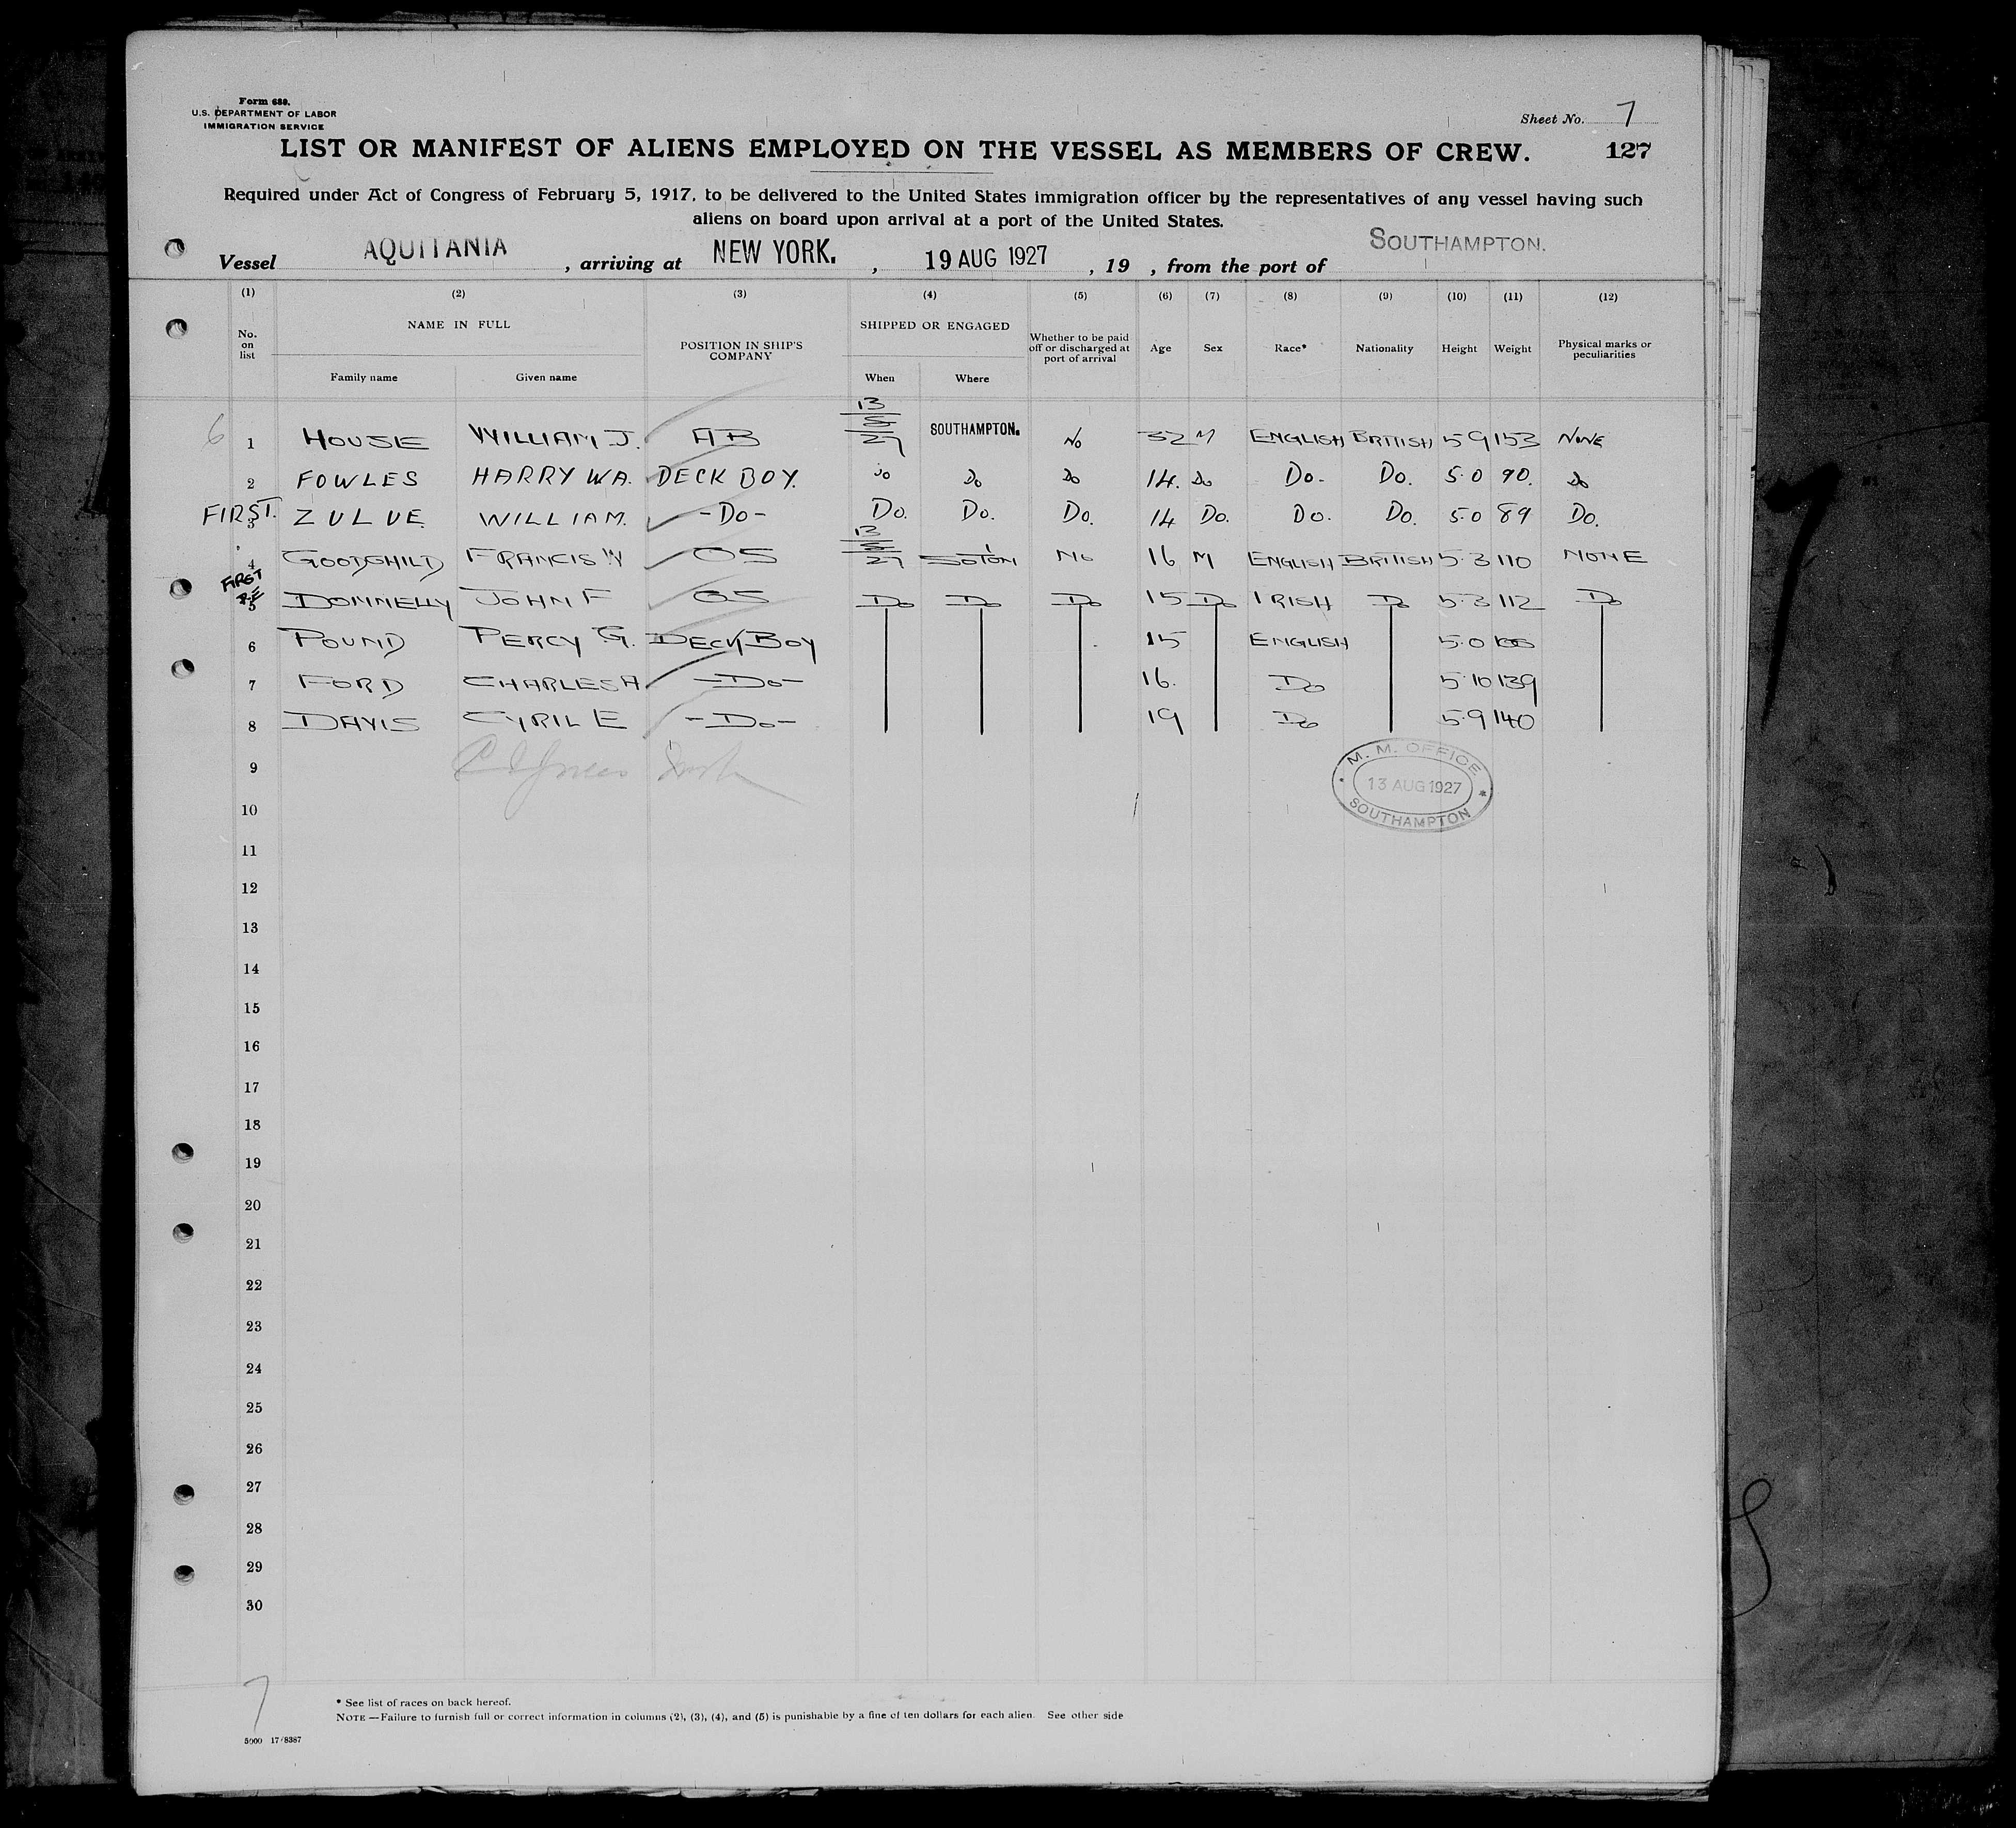 Form 680.
U.S. DEPARTMENT OF LABOR
IMMIGRATION SERVICE
Sheet No. 7
LIST OR MANIFEST OF ALIENS EMPLOYED ON THE VESSEL AS MEMBERS OF CREW. 127
Required under Act of Congress of February 5, 1917, to be delivered to the United States immigration officer by the representatives of any vessel having such
aliens on board upon arrival at a port of the United States.
Vessel AQUITANIA, arriving at NEW YORK., 19 AUG 1927, 19 , from the port of SOUTHAMPTON.
(1) (2) (3) (4) (5) (6) (7) (8) (9) (10) (11) (12)
No. on list NAME IN FULL POSITION IN SHIP'S COMPANY SHIPPED OR ENGAGED Whether to be paid off or discharged at port of arrival Age Sex Race* Nationality Height Weight Physical marks or peculiarities
Family name Given name When Where
6 1 HOUSE WILLIAM J. AB 13/8/27 SOUTHAMPTON. No 32 M ENGLISH BRITISH 5 9 153 NONE
2 FOWLES HARRY W.A. DECK BOY. Do Do Do 14. Do Do. Do. 5.0 90. Do
FIRST. 3 ZULUE WILLIAM. -Do- Do. Do. Do. 14 Do. Do. Do. 5.0 89 Do.
4 GOODCHILD FRANCIS W OS 13/8/27 SOTON No 16 M ENGLISH BRITISH 5.3 110 NONE
FIRST 5 DONNELLY JOHN F OS Do Do Do 15 Do IRISH Do 5.3 112 Do
6 POUND PERCY G. DECK BOY 15 ENGLISH 5.0
7 FORD CHARLES A -Do- 16. Do 5.10 139
8 DAVIS CYRIL E -Do- 19 Do 5.9 140
9
M. M. OFFICE
13 AUG 1927
SOUTHAMPTON
10
11
12
13
14
15
16
17
18
19
20
21
22
23
24
25
26
27
28
29
30
7
* See list of races on back hereof.
NOTE —Failure to furnish full or correct information in columns (2), (3), (4), and (5) is punishable by a fine of ten dollars for each alien. See other side
5000 17/8387